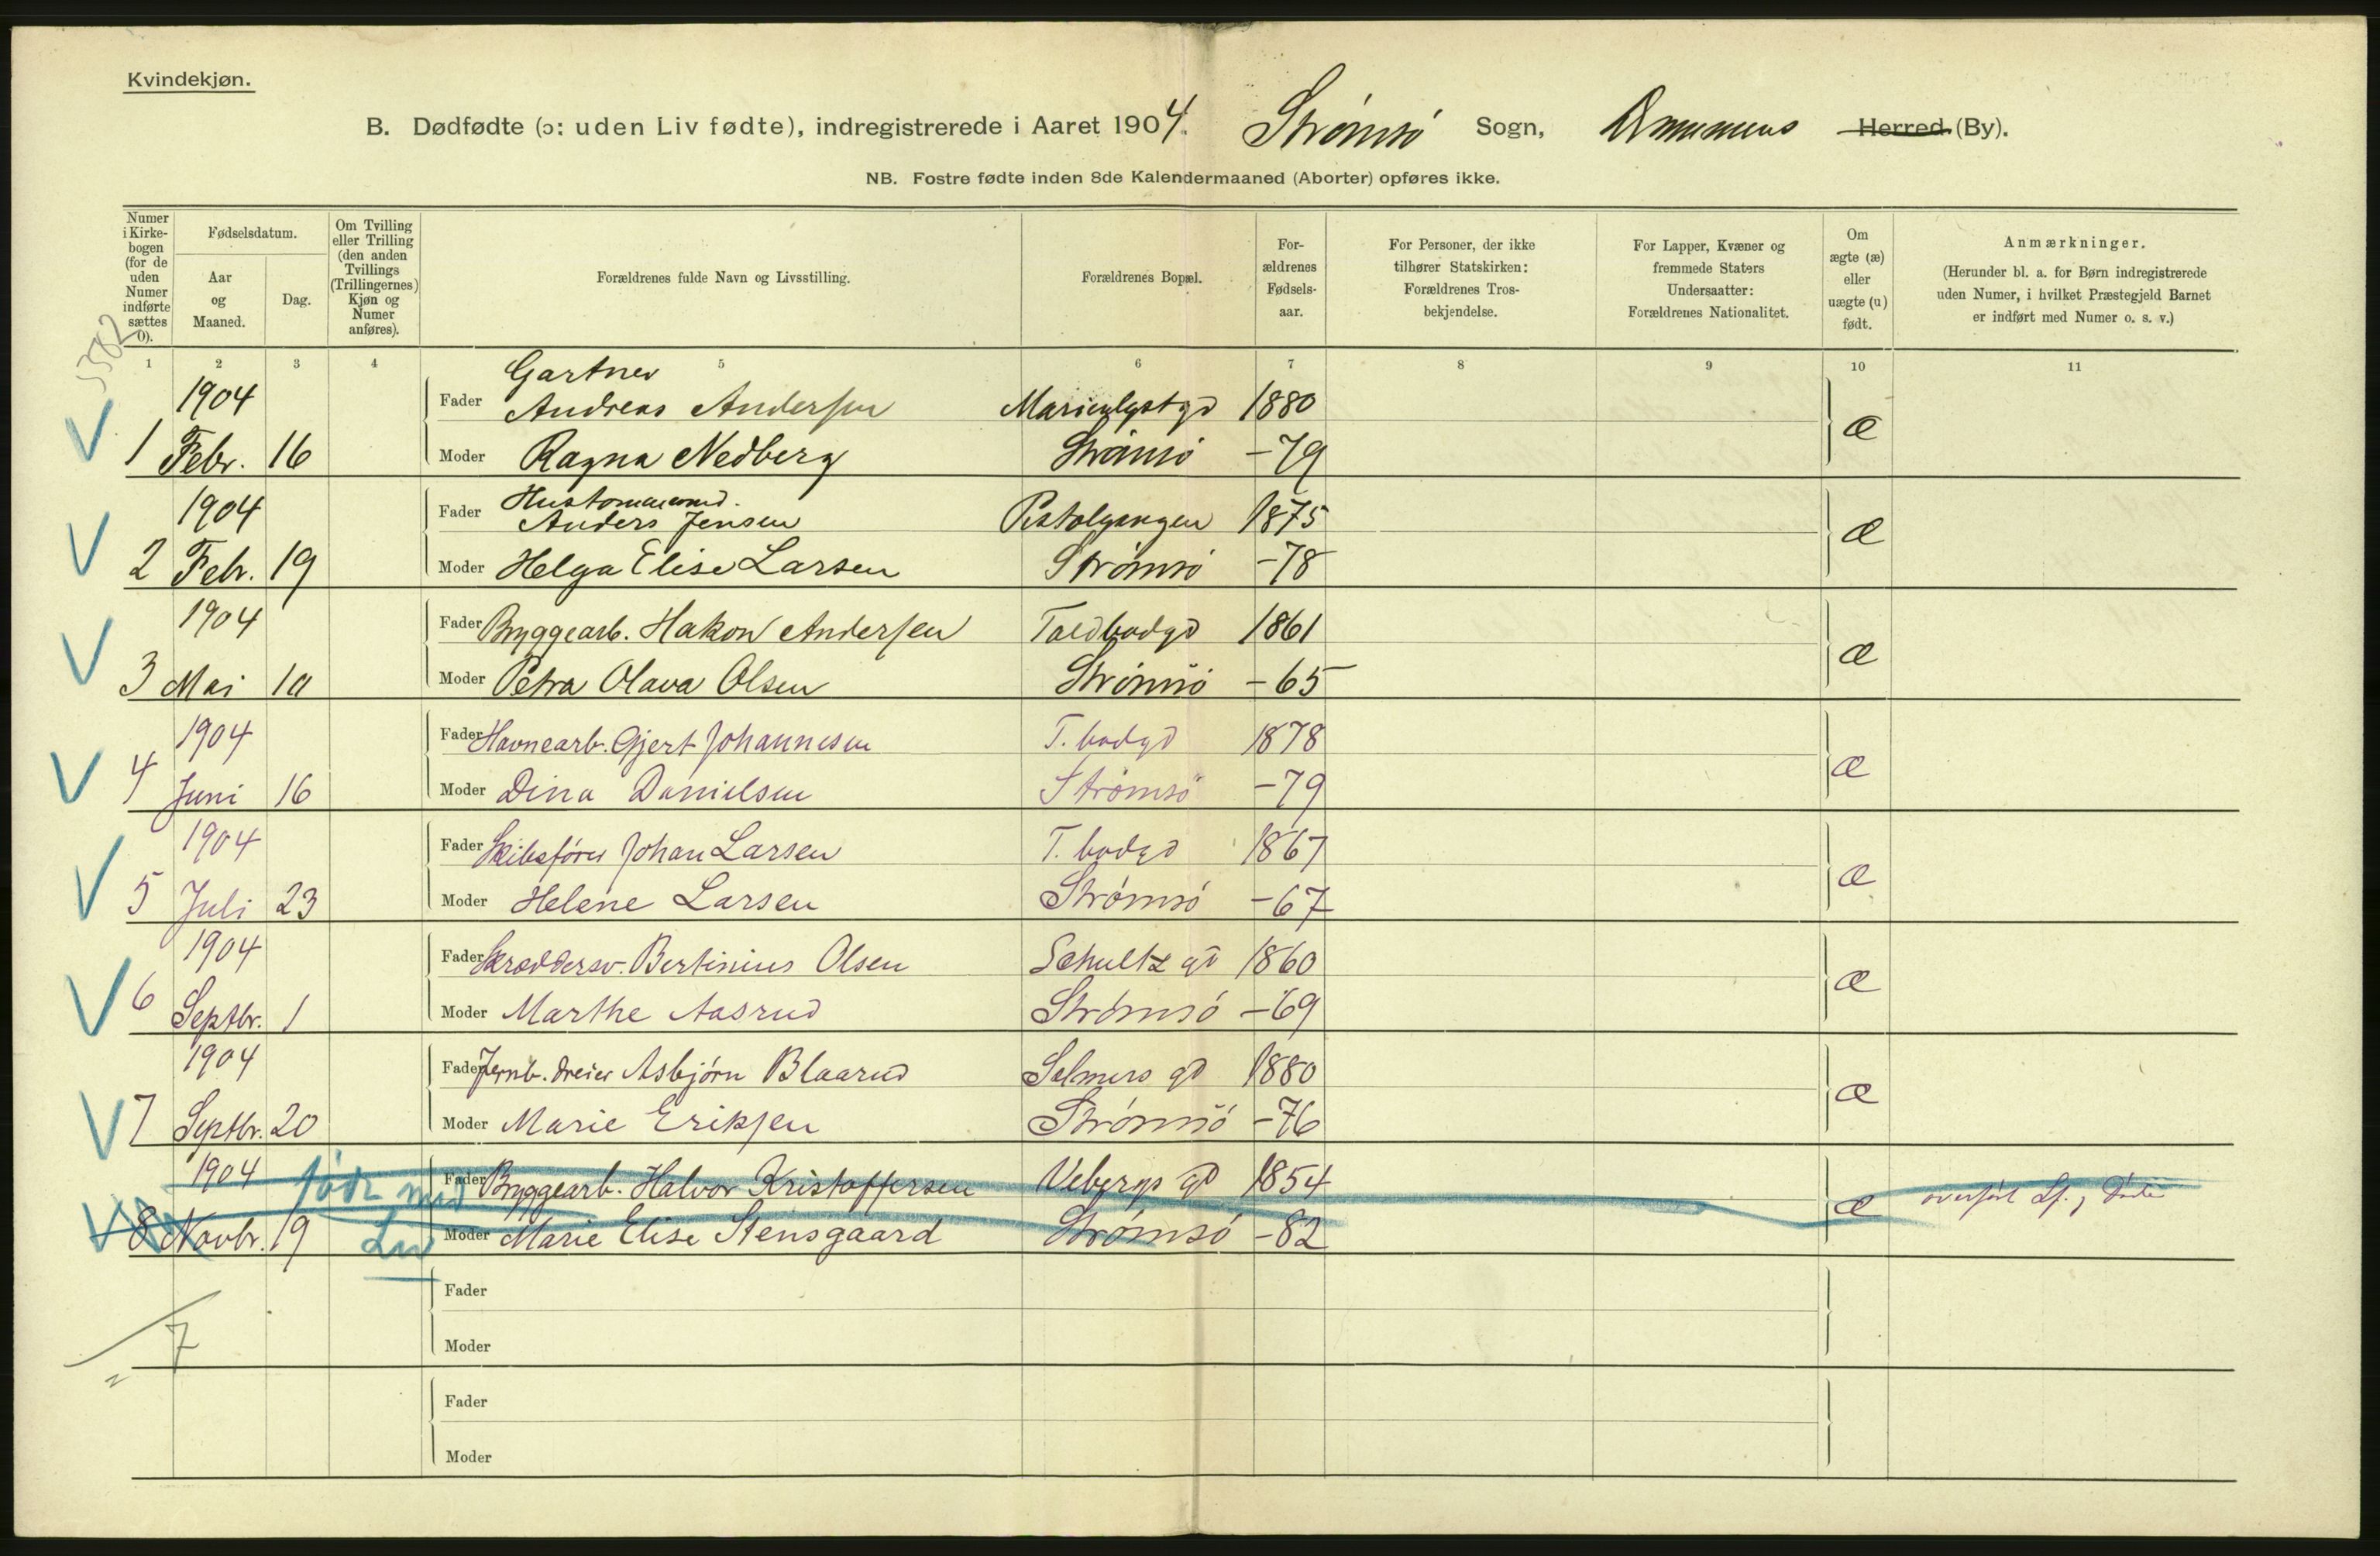 Kvindekjøn.
B. Dødfødte (ɔ: uden Liv fødte), indregistrerede i Aaret 1904. Strømsö Sogn, Drammens Herred (By).
NB. Fostre fødte inden 8de Kalendermaaned (Aborter) opføres ikke.
Numer i Kirke-bogen (for de uden Numer indførte sættes 0).
Fødselsdatum.
Aar og Maaned.
Dag.
Om Tvilling eller Trilling (den anden Tvillings (Trillingernes) Kjøn og Numer anføres).
Forældrenes fulde Navn og Livsstilling.
Forældrenes Bopæl.
For-ældrenes Fødsels-aar.
For Personer, der ikke tilhører Statskirken: Forældrenes Tros-bekjendelse.
For Lapper, Kvæner og fremmede Staters Undersaatter: Forældrenes Nationalitet.
Om ægte (æ) eller uægte (u) født.
Anmærkninger.
(Herunder bl. a. for Børn indregistrerede uden Numer, i hvilket Præstegjeld Barnet er indført med Numer o. s. v.)
1 2 3 4 5 6 7 8 9 10 11
Gartner
1904 Fader Andreas Andersen Marienlystgd 1880
1 Febr. 16 Moder Ragna Nedberg Strömsö -79 æ
1904 Fader Anders Jensen Pistolgangen 1875
2 Febr. 19 Moder Helga Elise Larsen Strømsö -78 æ
1904 Fader Bryggearb. Hakon Andersen Toldbodgd 1861
3 Mai 10 Moder Petra Olava Olsen Strömsö -65 æ
1904 Fader Havnearb. Gjert Johannesen T. bodgd 1878
4 Juni 16 Moder Dina Danielsen Strömsö -79 æ
1904 Fader Skibsförer Johan Larsen T. bodgd 1867
5 Juli 23 Moder Helene Larsen Strömsö -67 æ
1904 Fader Skræddersv. Bertinius Olsen Schultz gd 1860
6 Septbr. 1 Moder Marthe Aasrud Strömsö -69 æ
1904 Fader Jernb. dreier Asbjörn Blaarud Selmers gd 1880
7 Septbr. 20 Moder Marie Eriksen Strömsö -76 æ
1904 född med Fader Bryggearb. Halvor Kristoffersen Vebergs gd 1854
8 Novbr. 19 Liv Moder Marie Elise Stensgaard Strömsö -82 æ overført Lf., Døde
Fader
7 Moder
Fader
Moder